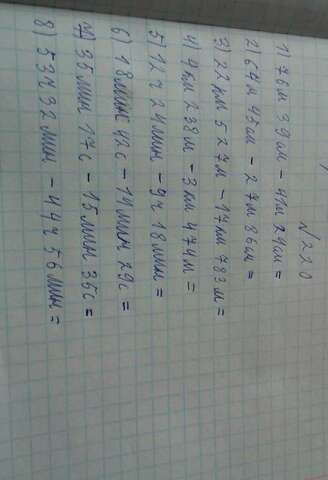 №220
1) 7м 39см - 4м 24см =
2) 64м 45см - 27м 86см =
3) 22км 527м - 17км 783м =
4) 4км 238м - 3км 474м =
5) 12ч 24мин - 9ч 18мин =
6) 18мин 42с - 14мин 29с =
7) 35мин 17с - 15мин 35с =
8) 53ч 32мин - 44ч 56мин =